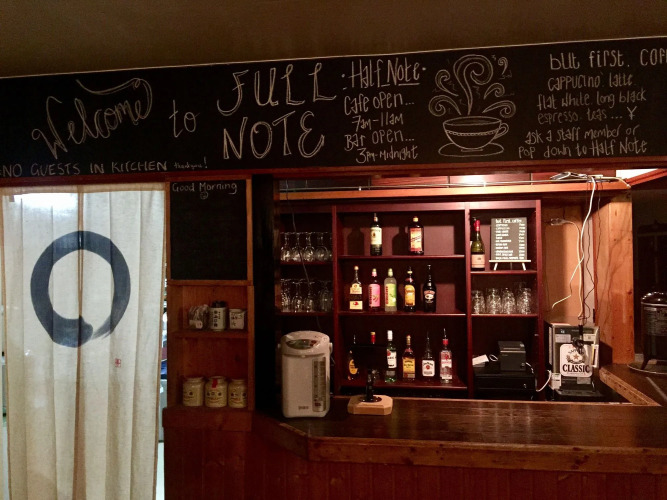 Welcome to FULL NOTE
NO GUESTS IN KITCHEN thank you!
Half Note
Cafe open...
7am-11am
Bar open...
3pm-midnight
but first, coff
cappucino. latte.
flat white long black
espresso. teas... ¥
ask a staff member or
pop down to Half Note
Good Morning
but first, coffee
CLASSIC